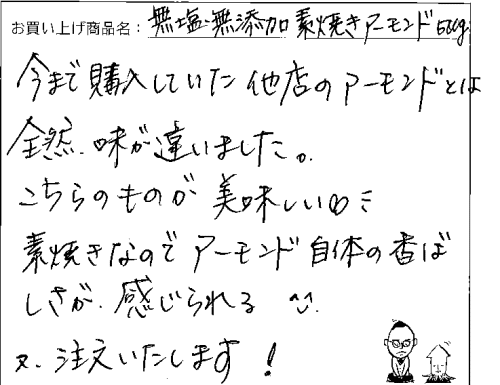 お買い上げ商品名：無塩・無添加 素焼きアーモンド 500g
今まで購入していた他店のアーモンドとは
全然、味が違いました。
こちらのものが美味しい
素焼きなのでアーモンド自体の香ば
しさが、感じられる
又、注文いたします！